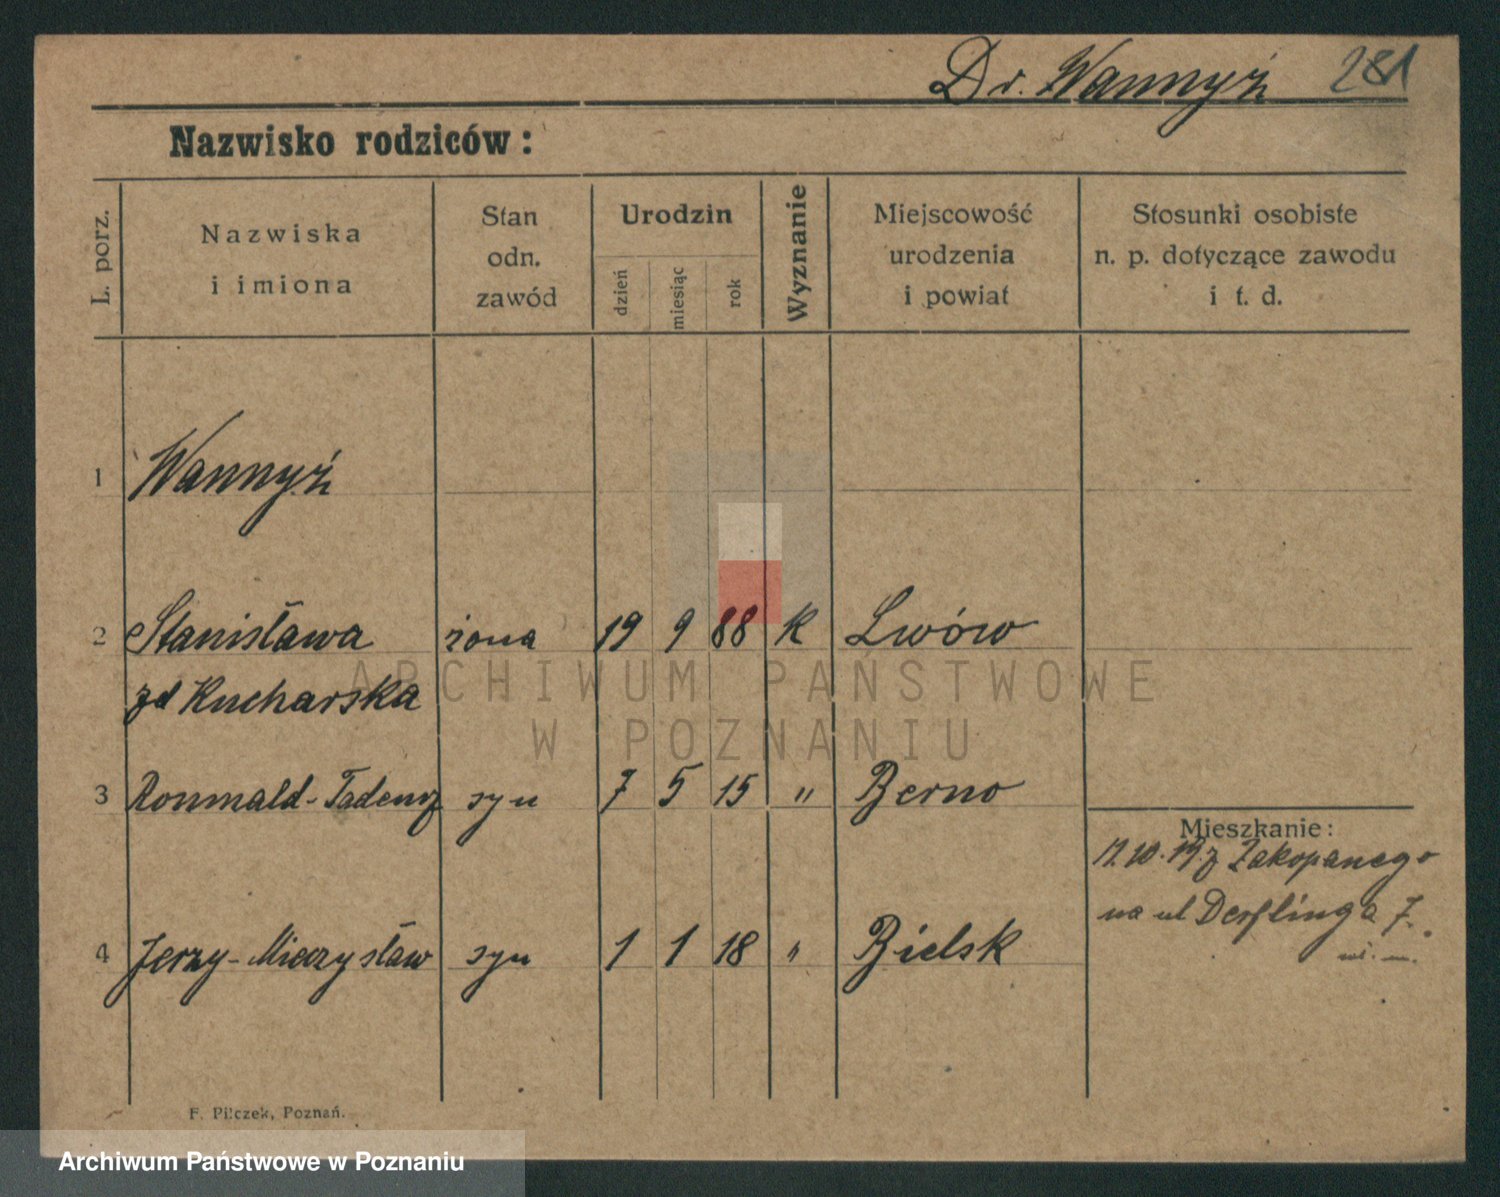 Dr. Wannyż 281
Nazwisko rodziców:
L. porz.
Nazwiska
i imiona
Stan
odn.
zawód
Urodzin
dzień
miesiąc
rok
Wyznanie
Miejscowość
urodzenia
i powiat
Stosunki osobiste
n. p. dotyczące zawodu
i t. d.
1 Wannyż
2 Stanisława żona 19 9 88 k Lwów
zd Kucharska
3 Romuald-Tadeusz syn 7 5 15 " Berno
Mieszkanie:
17.10.19. z Zakopanego
na ul Derflinga 7.
4 Jerzy-Mieczysław syn 1 1 18 " Bielsk
F. Pilczek, Poznań.
ARCHIWUM PAŃSTWOWE
W POZNANIU
Archiwum Państwowe w Poznaniu